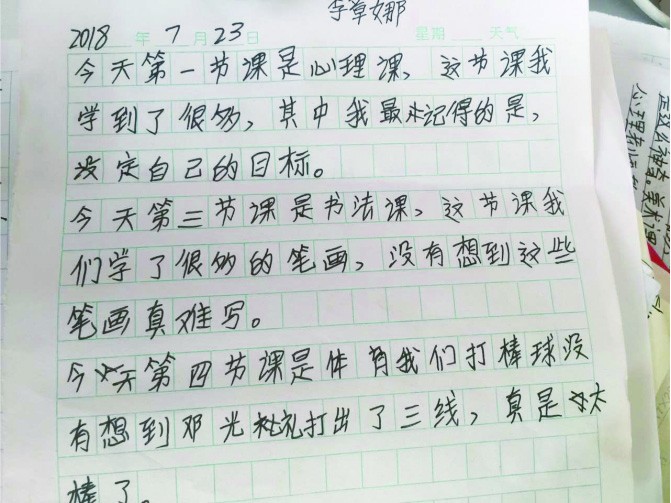 李草娜
2018年7月23日 星期 天气
今天第一节课是心理课，这节课我
学到了很多，其中我最记得的是，
没定自己的目标。
今天第三节课是书法课，这节课我
们学了很多的笔画，没有想到这些
笔画真难写。
今天第四节课是体育我们打棒球没
有想到邓光礼打出了三线，真是太
棒了。